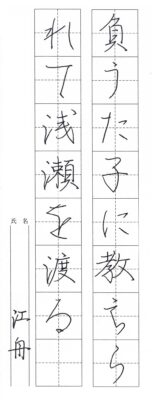 負うた子に教えら
れて浅瀬を渡る
氏名
江舟